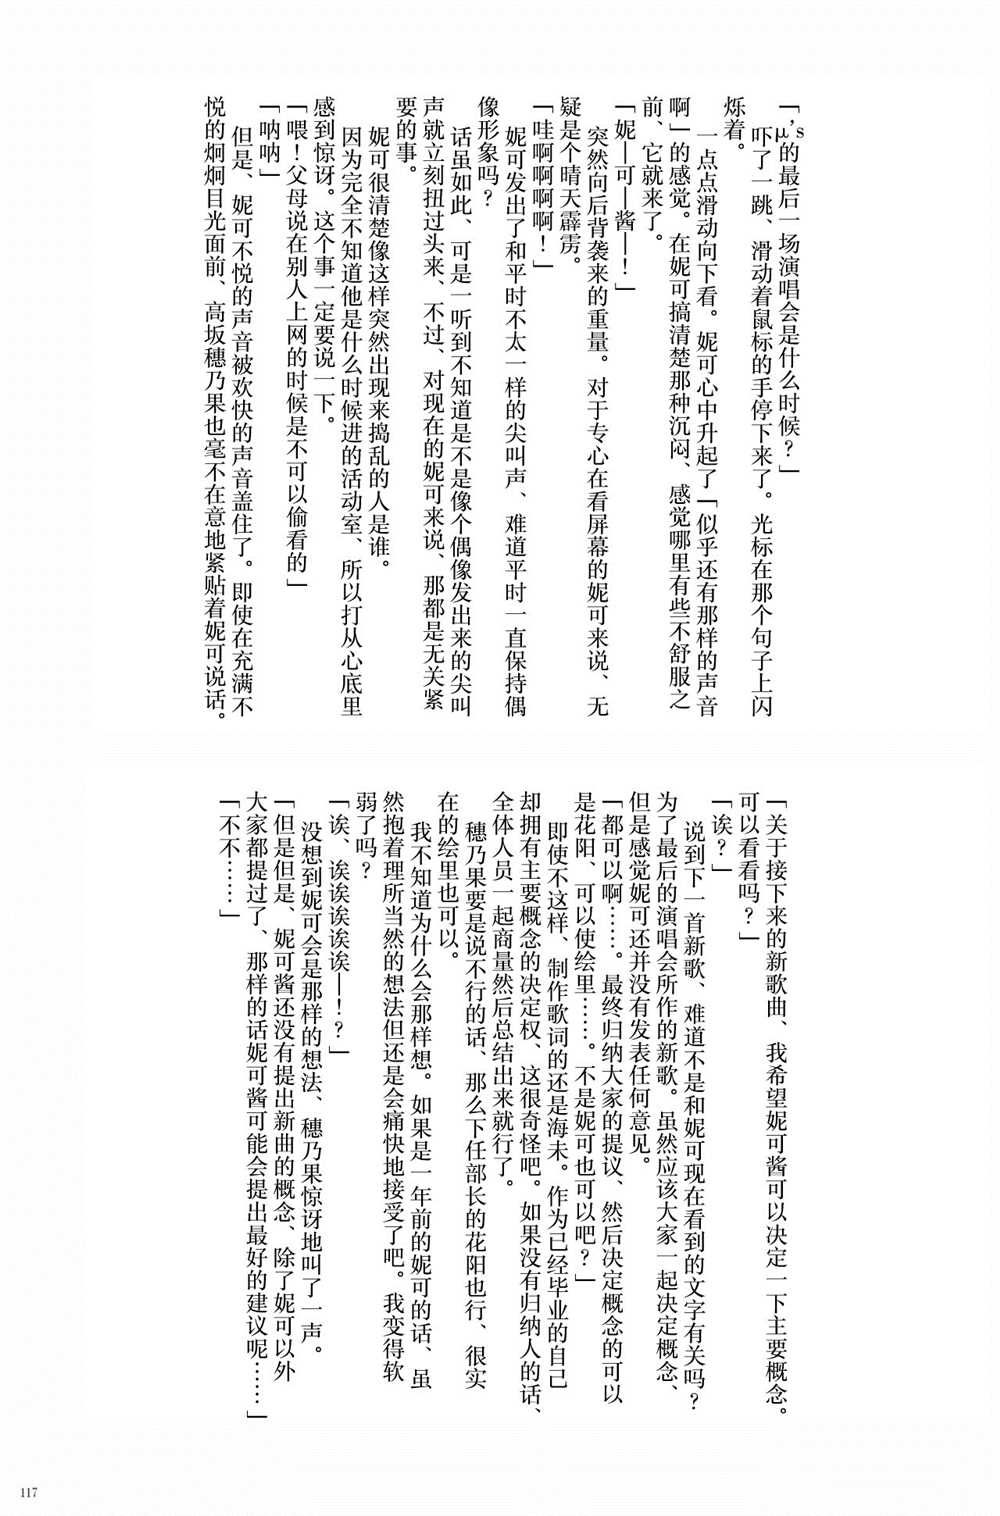 「μ'sの最后一场演唱会是什么时候？」
吓了一跳、滑动着鼠标的手停下来了。光标在那个句子上闪
烁着。
一点点滑动向下看。妮可心中升起了「似乎还有那样的声音
啊」的感觉。在妮可搞清楚那种沉闷、感觉哪里有些不舒服之
前、它就来了。
「妮—可—酱—！」
突然向后背袭来的重量。对于专心在看屏幕的妮可来说、无
疑是个晴天霹雳。
「哇啊啊啊啊！」
妮可发出了和平时不太一样的尖叫声、难道平时一直保持偶
像形象吗？
话虽如此、可是一听到不知道是不是像个偶像发出来的尖叫
声就立刻扭过头来、不过、对现在的妮可来说、那都是无关紧
要的事。
妮可很清楚像这样突然出现来捣乱的人是谁。
因为完全不知道他是什么时候进的活动室、所以打从心底里
感到惊讶。这个事一定要说一下。
「喂！父母说在别人上网的时候是不可以偷看的」
「呐呐」
但是、妮可不悦的声音被欢快的声音盖住了。即使在充满不
悦的炯炯目光面前、高坂穗乃果也毫不在意地紧贴着妮可说话。
「关于接下来的新歌曲、我希望妮可酱可以决定一下主要概念。
可以看看吗？」
「诶？」
说到下一首新歌、难道不是和妮可现在看到的文字有关吗？
为了最后的演唱会所作的新歌。虽然应该大家一起决定概念、
但是感觉妮可还并没有发表任何意见。
「都可以啊……。最终归纳大家的提议、然后决定概念的可以
是花阳、可以使绘里……。不是妮可也可以吧？」
即使不这样、制作歌词的还是海未。作为已经毕业的自己
却拥有主要概念的决定权、这很奇怪吧。如果没有归纳人的话、
全体人员一起商量然后总结出来就行了。
穗乃果要是说不行的话、那么下任部长的花阳也行、很实
在的绘里也可以。
我不知道为什么会那样想。如果是一年前的妮可的话、虽
然抱着理所当然的想法但还是会痛快地接受了吧。我变得软
弱了吗？
「诶、诶诶诶诶诶—！？」
没想到妮可会是那样的想法、穗乃果惊讶地叫了一声。
「但是但是、妮可酱还没有提出新曲的概念、除了妮可以外
大家都提过了、那样的话妮可酱可能会提出最好的建议呢……」
「不不……」
117